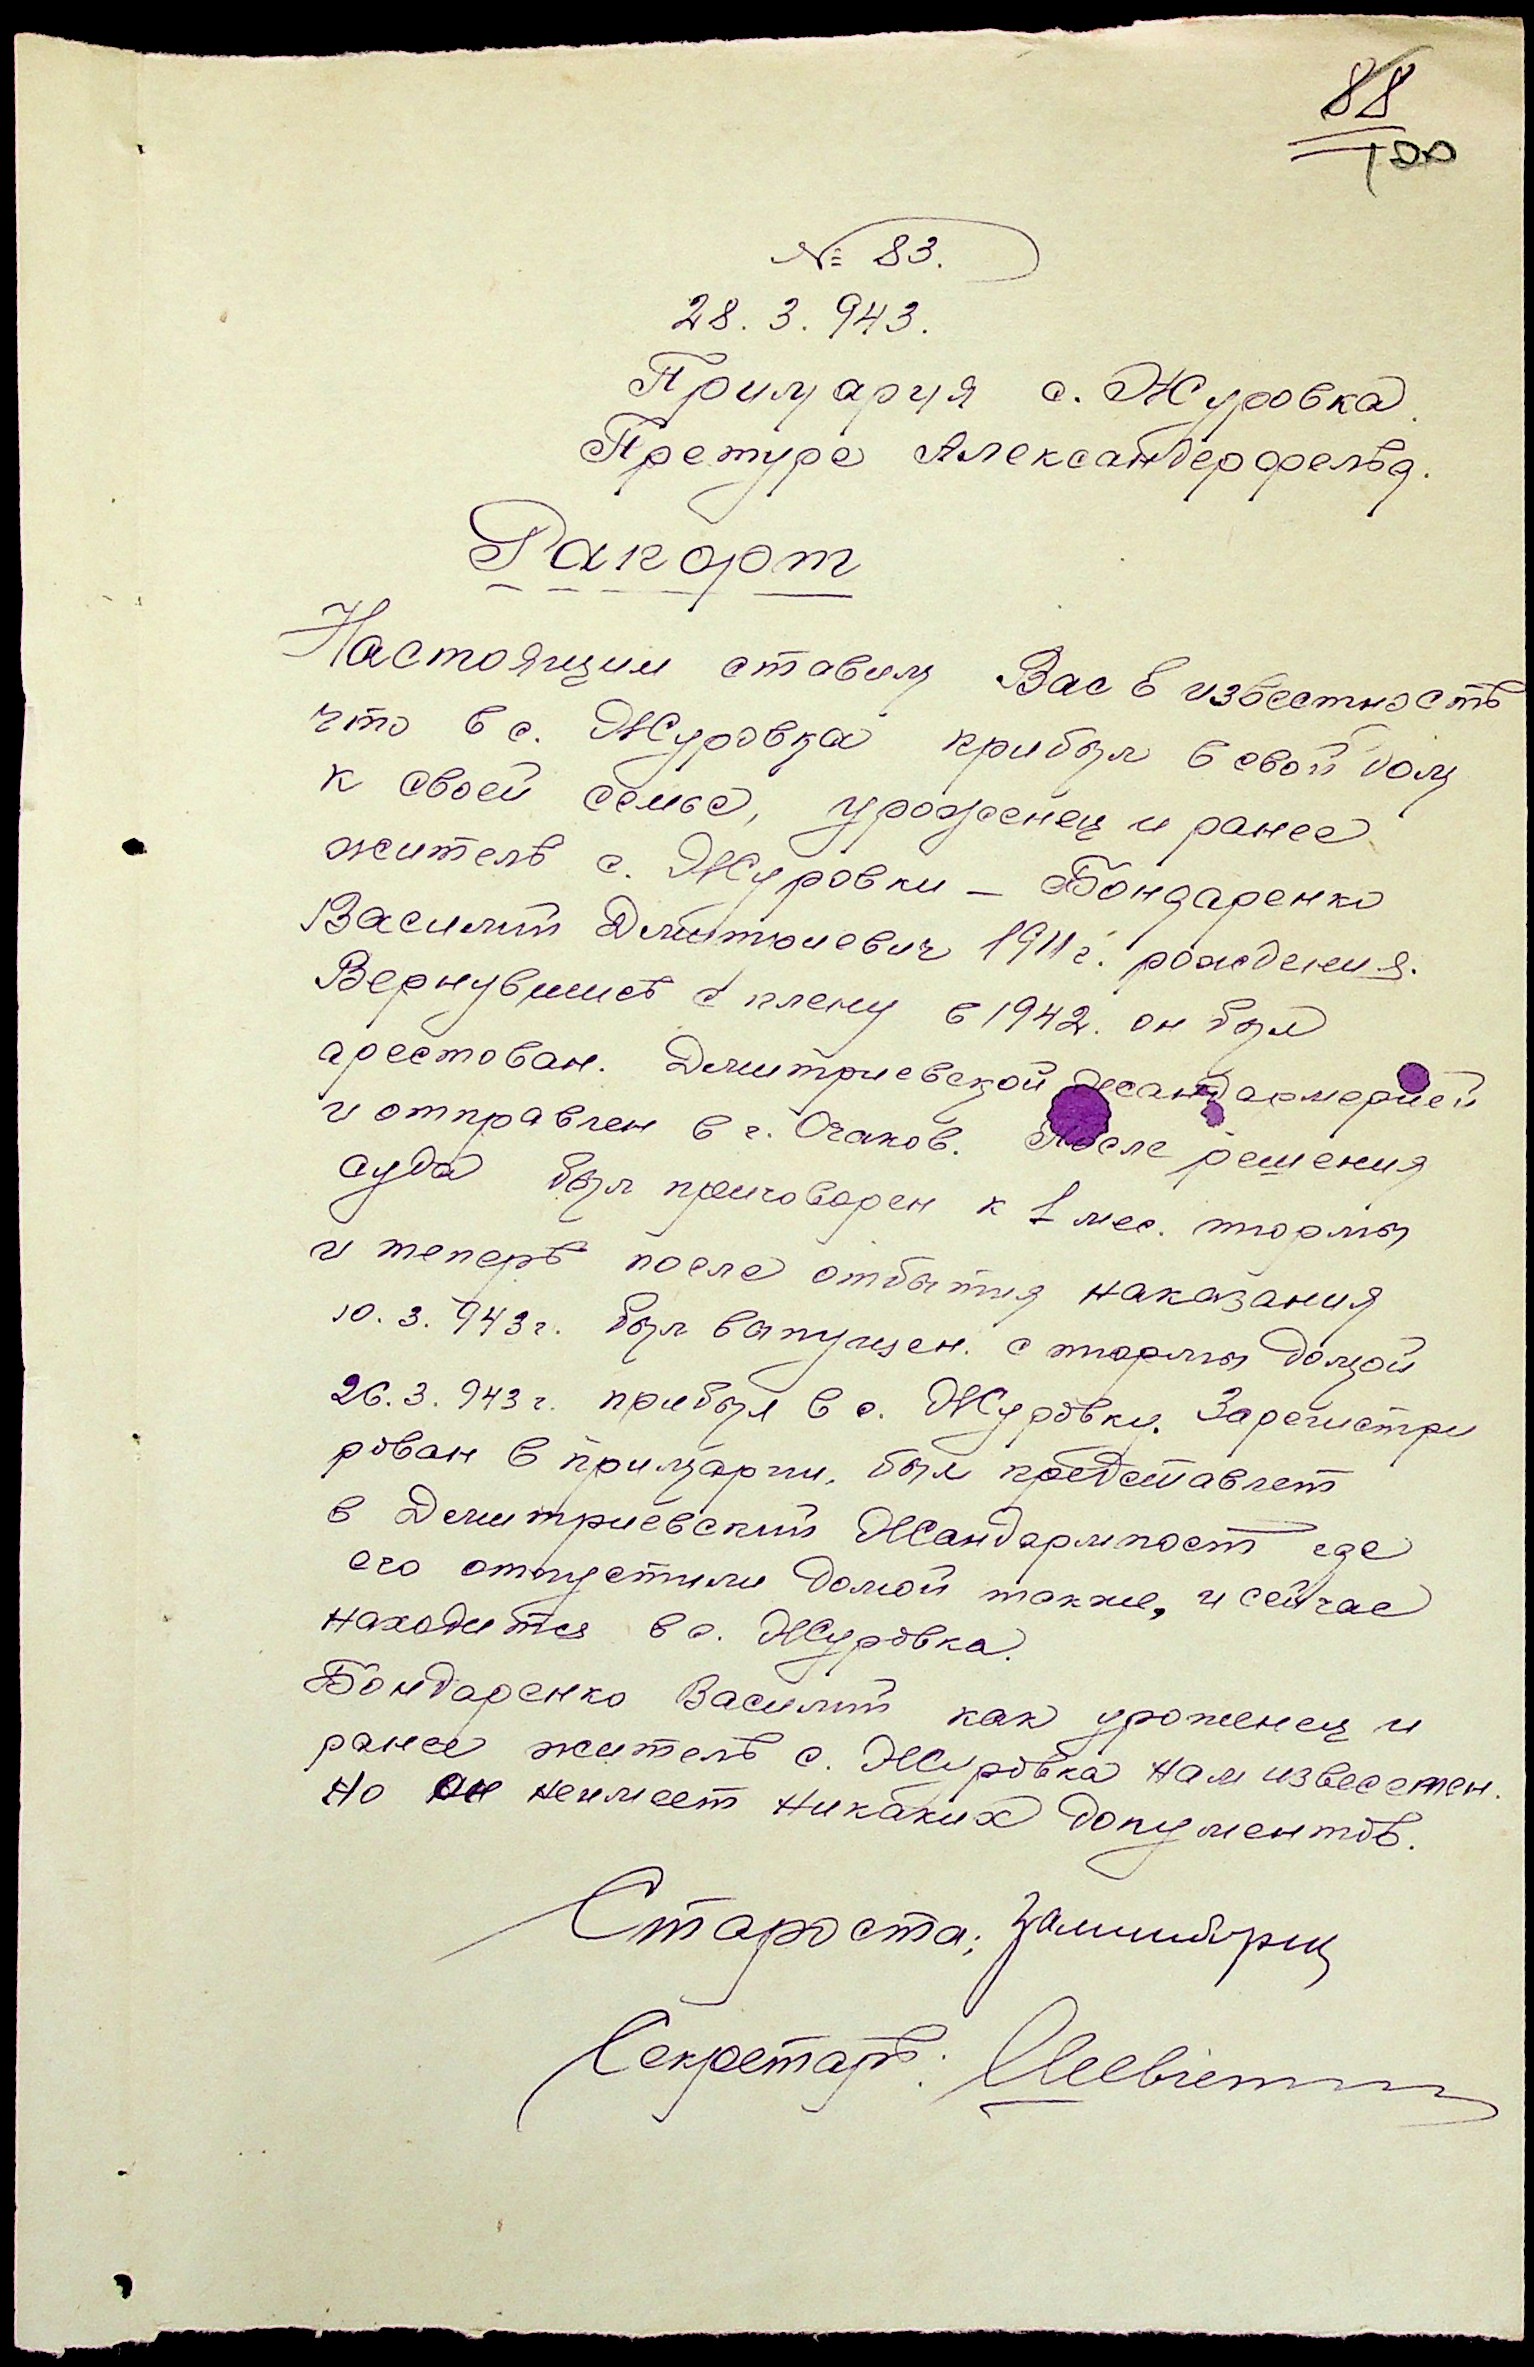 88
100
№ 83.
28. 3. 943.
Примария с. Журовка.
Претуре Александерфельд.
Рапорт
Настоящим ставим Вас в известность
что в с. Журовка прибыл в свой дом
к своей семье, уроженец и ранее
житель с. Журовки – Бондаренко
Василий 1911 г. рождения.
Вернувшись с плену в 1942. он был
арестован. Дмитриевской жандармерией
и отправлен в г. Очаков. После решения
суда был приговорен к 1 мес. тюрмы
и теперь после отбытия наказания
10. 3. 943 г. был выпущен. с тюрмы домой
26. 3. 943 г. прибыл в с. Журовку. Зарегистри
рован в примарии, был представлет
в Дмитриевский Жандармпост где
его отпустили домой также, и сейчас
находится в с. Журовка.
Бондаренко Василий как уроженец и
ранее житель с. Журовка нам известен.
Но он неимеет никаких документов.
Староста;
Секретарь: